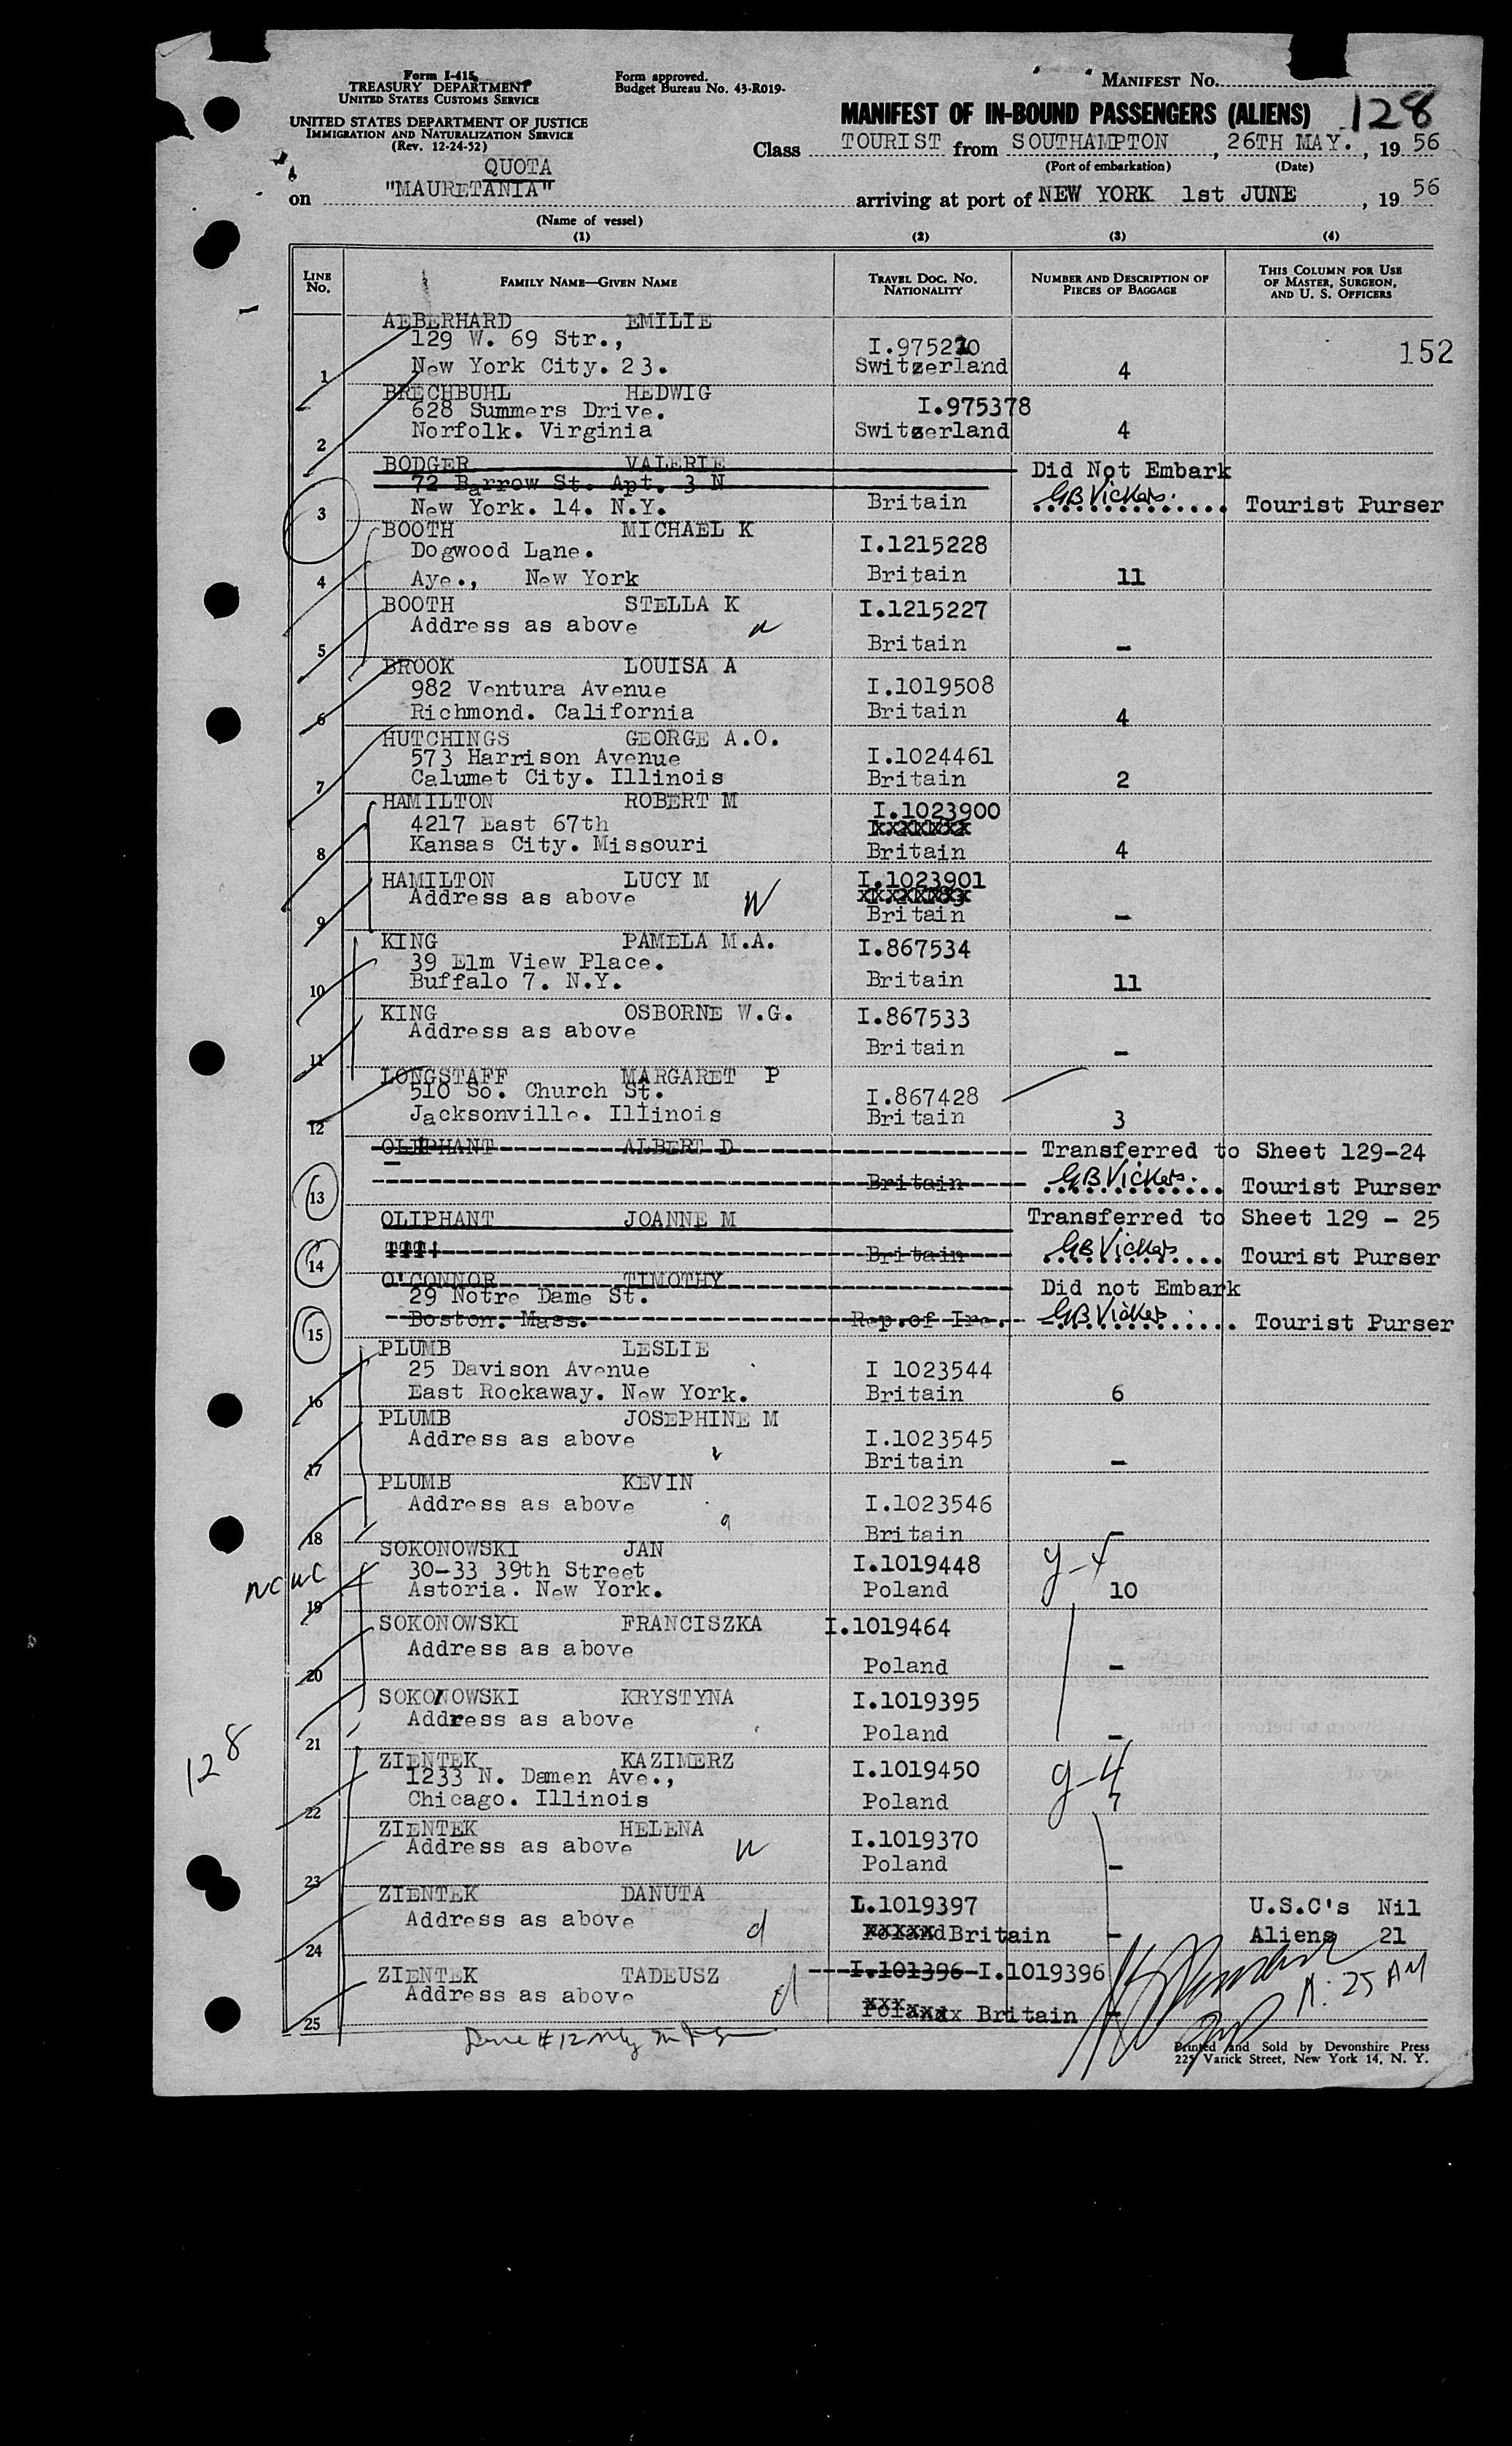 Form I-415
TREASURY DEPARTMENT
UNITED STATES CUSTOMS SERVICE
UNITED STATES DEPARTMENT OF JUSTICE
IMMIGRATION AND NATURALIZATION SERVICE
(Rev. 12-24-52)
Form approved.
Budget Bureau No. 43-R019-
MANIFEST NO.
MANIFEST OF IN-BOUND PASSENGERS (ALIENS) 128
Class TOURIST from SOUTHAMPTON, 26TH MAY., 19 56
(Port of embarkation) (Date)
QUOTA
on "MAURETANIA" arriving at port of NEW YORK 1st JUNE, 19 56
(Name of vessel)
(1) (2) (3) (4)
LINE NO. FAMILY NAME—GIVEN NAME TRAVEL DOC. NO. NATIONALITY NUMBER AND DESCRIPTION OF PIECES OF BAGGAGE THIS COLUMN FOR USE OF MASTER, SURGEON, AND U. S. OFFICERS
AEBERHARD EMILIE
129 W. 69 Str., 152
1 New York City. 23. Switzerland 4
BRECHBUHL HEDWIG
628 Summers Drive. I.975378
2 Norfolk. Virginia Switzerland 4
BODGER VALERIE Did Not Embark
72 Barrow St. Apt. 3 N
3 New York. 14. N.Y. Britain GB Vickers. Tourist Purser
BOOTH MICHAEL K
Dogwood Lane. I.1215228
4 Aye., New York Britain 11
BOOTH STELLA K I.1215227
Address as above
5 Britain -
BROOK LOUISA A
982 Ventura Avenue I.1019508
6 Richmond. California Britain 4
HUTCHINGS GEORGE A.O.
573 Harrison Avenue I.1024461
7 Calumet City. Illinois Britain 2
HAMILTON ROBERT M I.1023900
4217 East 67th
8 Kansas City. Missouri Britain 4
HAMILTON LUCY M I.1023901
Address as above W
9 Britain -
KING PAMELA M.A. I.867534
39 Elm View Place.
10 Buffalo 7. N.Y. Britain 11
KING OSBORNE W.G. I.867533
Address as above
11 Britain -
LONGSTAFF MARGARET P
510 So. Church St. I.867428
12 Jacksonville. Illinois Britain 3
OLIPHANT ALBERT D Transferred to Sheet 129-24
13 Britain GB Vickers. Tourist Purser
OLIPHANT JOANNE M Transferred to Sheet 129 - 25
14 Britain GB Vickers Tourist Purser
O'CONNOR TIMOTHY Did not Embark
29 Notre Dame St.
15 Boston. Mass. Rep.of Ire. GB Vickers Tourist Purser
PLUMB LESLIE
25 Davison Avenue I 1023544
16 East Rockaway. New York. Britain 6
PLUMB JOSEPHINE M
Address as above I.1023545
17 Britain -
PLUMB KEVIN
Address as above I.1023546
18 Britain -
SOKONOWSKI JAN
30-33 39th Street I.1019448
19 Astoria. New York. Poland 10
SOKONOWSKI FRANCISZKA I.1019464
Address as above
20 Poland -
SOKONOWSKI KRYSTYNA I.1019395
Address as above
21 Poland -
128
ZIENTEK KAZIMERZ
1233 N. Damen Ave., I.1019450 g-4
22 Chicago. Illinois Poland 7
ZIENTEK HELENA
Address as above I.1019370
23 Poland -
ZIENTEK DANUTA I.1019397 U.S.C's Nil
24 Address as above d Poland Britain - Aliens 21
ZIENTEK TADEUSZ I.101396-I.1019396
Address as above d
25 Poland Britain -
Printed and Sold by Devonshire Press
225 Varick Street, New York 14, N. Y.